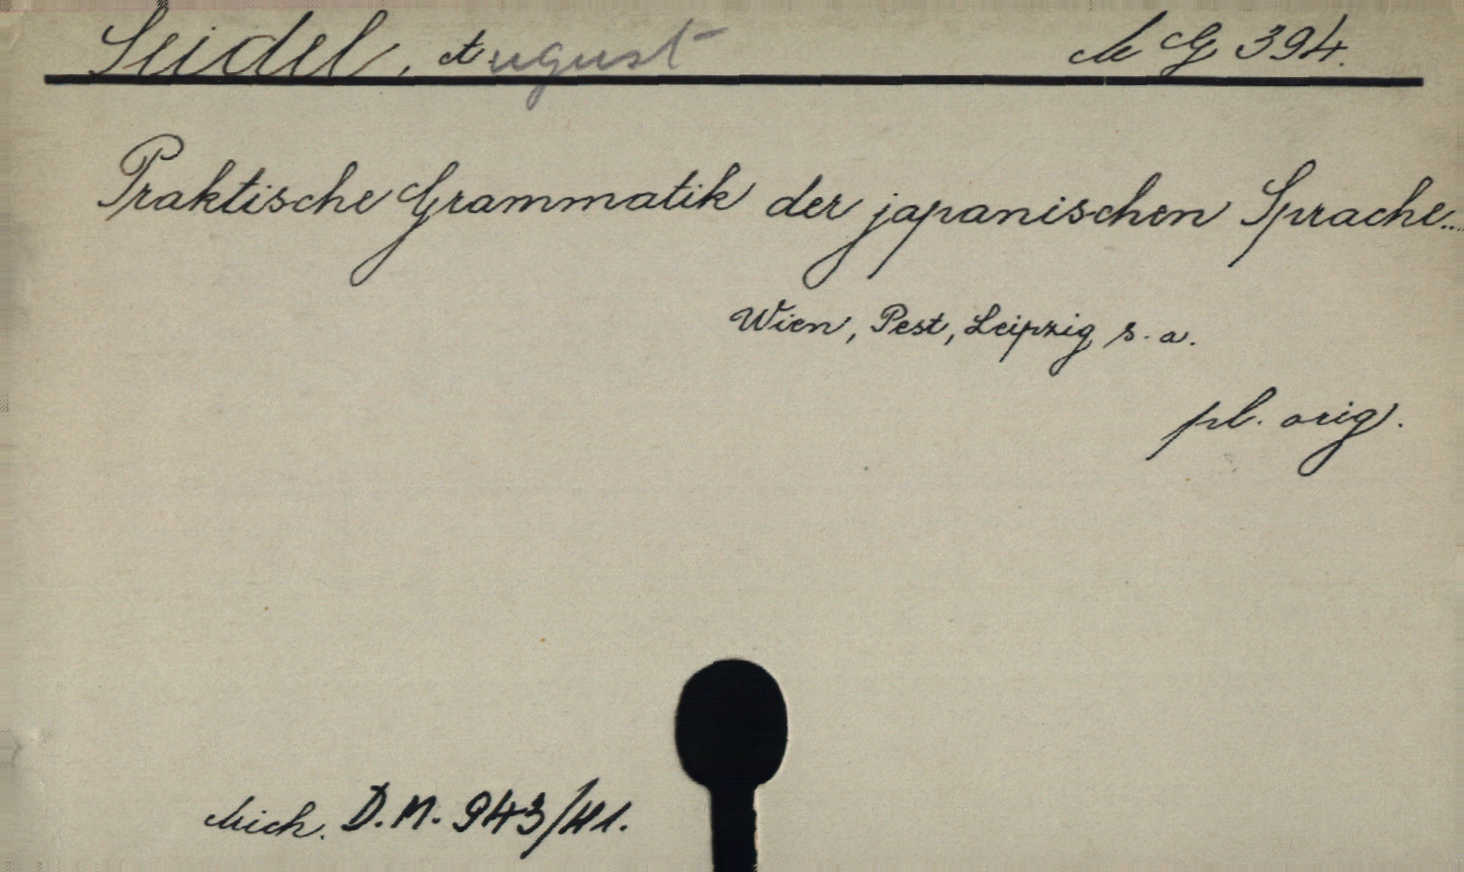 Seidel, August M G 394.
Praktische Grammatik der japanischen Sprache...
Wien, Pest, Leipzig s. a.
pl. orig.
Mich. D.N. 943/41.